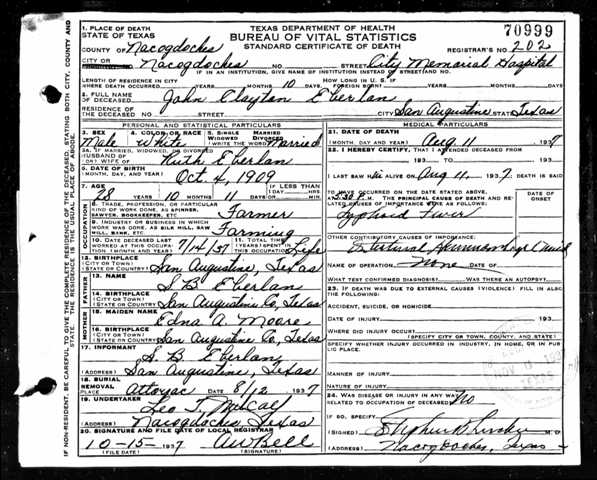 70999
TEXAS DEPARTMENT OF HEALTH
BUREAU OF VITAL STATISTICS
STANDARD CERTIFICATE OF DEATH
REGISTRAR'S NO. 202
1. PLACE OF DEATH
STATE OF TEXAS
COUNTY OF Nacogdoches
CITY OR Nacogdoches NO. STREET City Memorial Hospital
IF IN AN INSTITUTION, GIVE NAME OF INSTITUTION INSTEAD OF STREET AND NO.
LENGTH OF RESIDENCE IN CITY WHERE DEATH OCCURRED YEARS MONTHS 10 DAYS HOW LONG IN U.S. IF FOREIGN BORN? YEARS MONTHS DAYS
2. FULL NAME OF DECEASED John Clayton Eberlan
RESIDENCE OF THE DECEASED NO. STREET CITY San Augustine STATE Texas
PERSONAL AND STATISTICAL PARTICULARS
3. SEX Male
4. COLOR OR RACE White
5. SINGLE MARRIED WIDOWED DIVORCED (WRITE THE WORD) Married
5A. IF MARRIED, WIDOWED, OR DIVORCED HUSBAND OF (OR) WIFE OF Ruth Eberlan
6. DATE OF BIRTH (MONTH, DAY, AND YEAR) Oct. 4, 1909
7. AGE 28 YEARS 10 MONTHS 11 DAYS IF LESS THAN 1 DAY HRS. MIN.
OCCUPATION
8. TRADE, PROFESSION, OR PARTICULAR KIND OF WORK DONE, AS SPINNER, SAWYER, BOOKKEEPER, ETC. Farmer
9. INDUSTRY OR BUSINESS IN WHICH WORK WAS DONE, AS SILK MILL, SAW MILL, BANK, ETC. Farming
10. DATE DECEASED LAST WORKED AT THIS OCCUPATION (MONTH AND YEAR) 7/14/37
11. TOTAL TIME (YEARS) SPENT IN THIS OCCUPATION Life
12. BIRTHPLACE (CITY OR TOWN) (STATE OR COUNTRY) San Augustine, Texas
FATHER
13. NAME S. B. Eberlan
14. BIRTHPLACE (CITY OR TOWN) (STATE OR COUNTRY) San Augustine Co, Texas
MOTHER
15. MAIDEN NAME Edna A. Moore
16. BIRTHPLACE (CITY OR TOWN) (STATE OR COUNTRY) San Augustine Co, Texas
17. INFORMANT S. B. Eberlan
(ADDRESS) San Augustine, Texas
18. BURIAL REMOVAL PLACE Attoyac DATE 8/12 1937
19. UNDERTAKER Leo T. Metcalf
(ADDRESS) Nacogdoches, Texas
20. SIGNATURE AND FILE DATE OF LOCAL REGISTRAR
10-15-1937 AW Bell
(FILE DATE) (SIGNATURE)
MEDICAL PARTICULARS
21. DATE OF DEATH (MONTH, DAY AND YEAR) Aug 11 1937
22. I HEREBY CERTIFY, THAT I ATTENDED DECEASED FROM
193 TO 193
I LAST SAW him ALIVE ON Aug 11, 1937, DEATH IS SAID
TO HAVE OCCURRED ON THE DATE STATED ABOVE, AT 2:30 P.M. THE PRINCIPAL CAUSE OF DEATH AND RELATED CAUSES OF IMPORTANCE WERE AS FOLLOWS:
DATE OF ONSET
Typhoid Fever
OTHER CONTRIBUTORY CAUSES OF IMPORTANCE:
NAME OF OPERATION None DATE OF
WHAT TEST CONFIRMED DIAGNOSIS? WAS THERE AN AUTOPSY?
23. IF DEATH WAS DUE TO EXTERNAL CAUSES (VIOLENCE) FILL IN ALSO THE FOLLOWING:
ACCIDENT, SUICIDE, OR HOMICIDE
DATE OF INJURY 193
WHERE DID INJURY OCCUR
(SPECIFY CITY OR TOWN, COUNTY, AND STATE)
SPECIFY WHETHER INJURY OCCURRED IN INDUSTRY, IN HOME, OR IN PUBLIC PLACE.
MANNER OF INJURY
NATURE OF INJURY
24. WAS DISEASE OR INJURY IN ANY WAY RELATED TO OCCUPATION OF DECEASED? No
IF SO, SPECIFY
(SIGNED) M.D.
(ADDRESS) Nacogdoches, Texas